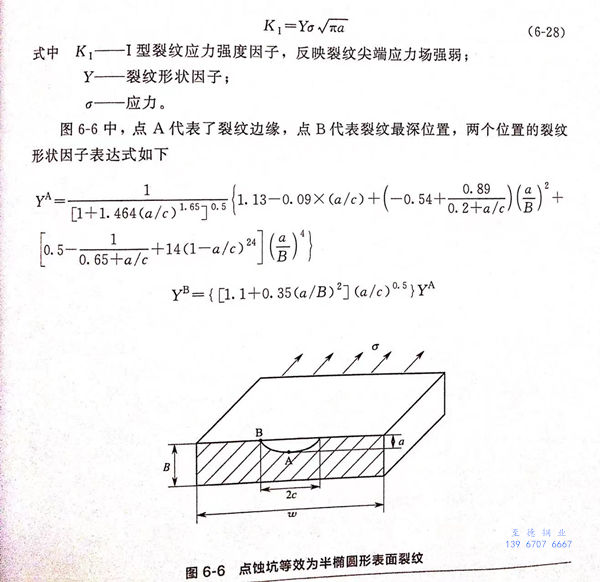 K₁=Yσ√πa (6-28)
式中 K₁——Ⅰ型裂纹应力强度因子，反映裂纹尖端应力场强弱；
Y——裂纹形状因子；
σ——应力。
图 6-6 中，点 A 代表了裂纹边缘，点 B 代表裂纹最深位置，两个位置的裂纹
形状因子表达式如下
Yᴬ= 1/[1+1.464(a/c)^1.65]^0.5 {1.13−0.09×(a/c)+(−0.54+0.89/(0.2+a/c))(a/B)^2+
[0.5−1/(0.65+a/c)+14(1−a/c)^24](a/B)^4}
Yᴮ={[1.1+0.35(a/B)^2](a/c)^0.5}Yᴬ
σ
B
a
A
B
2c
w
至德钢业
139 6707 6667
图 6-6 点蚀坑等效为半椭圆形表面裂纹